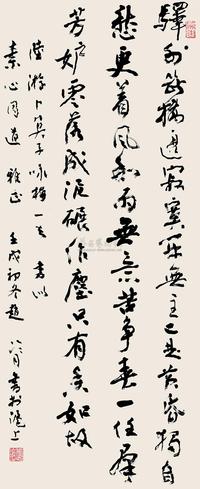 驛外斷橋邊寂寞開無主已是黃昏獨自
愁更着風和雨無意苦爭春一任群
芳妒零落成泥碾作塵只有香如故
陸游卜算子詠梅一首 書以
素心同道 雅正 壬戌初冬趙冷月書於滬上